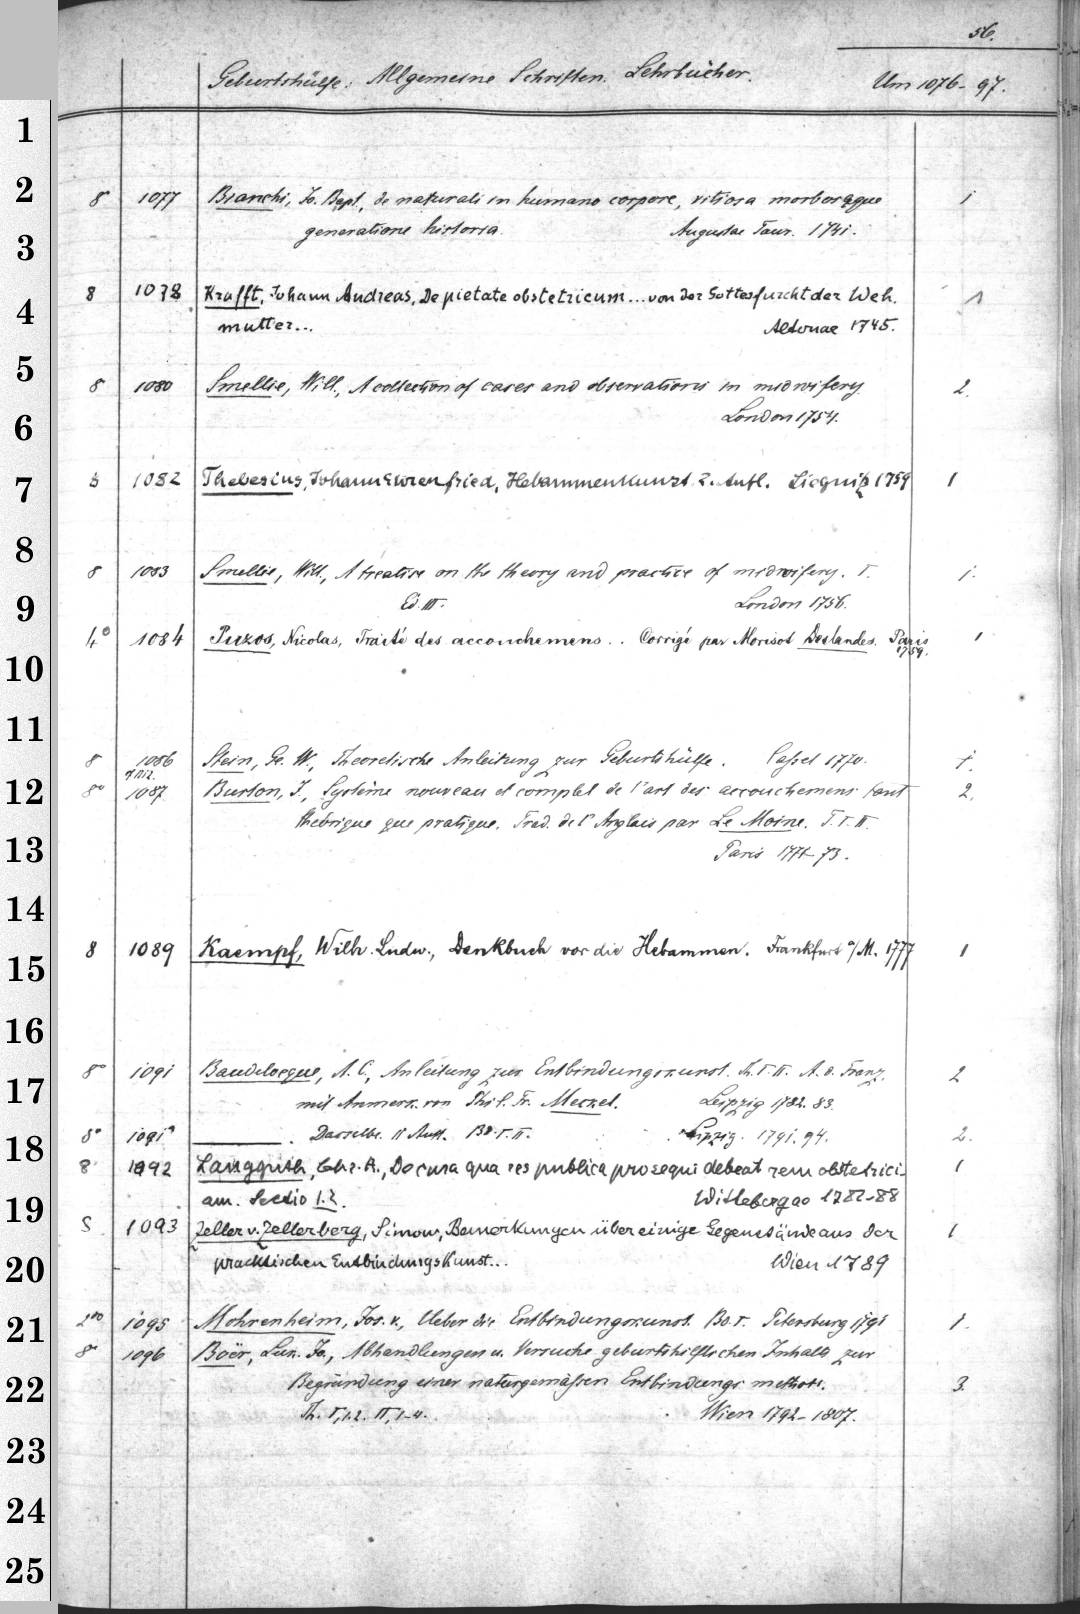 56.
Geburtshülfe: Allgemeine Schriften. Lehrbücher. Um 1076-97.
1
2
8 1077 Bianchi, Jo. Bapt., de naturali in humano corpore, vitiosa morbosaque 1
3
generatione historia. Augustae Taur. 1741.
8 1078 Krafft, Johann Andreas, De pietate obstetricum... von der Gottesfurcht der Weh- 1
4
mutter... Altonae 1745.
5
8 1080 Smellie, Will., A collection of cases and observations in midwifery 2.
6
London 1754.
7
8 1082 Thebesius, Johann Ehrenfried, Hebammenkunst 2. Aufl. Liegnitz 1759 1
8
8 1083 Smellie, Will., A treatise on the theory and practice of midwifery. I. 1.
9
Ed. III. London 1756.
4° 1084 Puzos, Nicolas, Traité des accouchemens .. Corrigé par Morisot Deslandes. Paris 1759. 1
10
11
8 1086 Stein, G. W., Theoretische Anleitung zur Geburtshülfe. Cassel 1770. 1.
12
8° 1087 Burton, J., Système nouveau et complet de l'art des accouchemens tant 2.
théorique que pratique. Trad. de l'Anglais par Le Moine. T. I. II.
13
Paris 1771-73.
14
8 1089 Kaempf, Wilh. Ludw., Denkbuch vor die Hebammen. Frankfurt a/M. 1777 1
15
16
8° 1091 Baudelocque, A. C., Anleitung zur Entbindungskunst. Th. I. II. A. d. Franz. 2
17
mit Anmerk. von Phil. Fr. Meckel. Leipzig 1782. 83.
18
8° 1091a ———. Dasselbe. II Aufl. Bd. I. II. Leipzig. 1791. 94. 2.
8° 1092 Langguth, Chr. A., De cura qua res publica prosequi debeat rem obstetrici- 1
19
am. Sectio 1.2. Witlebergae 1782-88
8. 1093 Zeller v. Zellerberg, Simon, Bemerkungen über einige Gegenstände aus der 1
20
pracktischen Entbindungskunst... Wien 1789
21
2°° 1095 Mohrenheim, Jos. v., Ueber die Entbindungskunst. Bd. I. Petersburg 1791 1.
8° 1096 Boër, Luc. Jo., Abhandlungen u. Versuche geburtshilflichen Inhalts zur
22
Begründung einer naturgemässen Entbindungsmethode. 3.
Th. I, 1.2. II, 1-4. Wien 1792-1807.
23
24
25